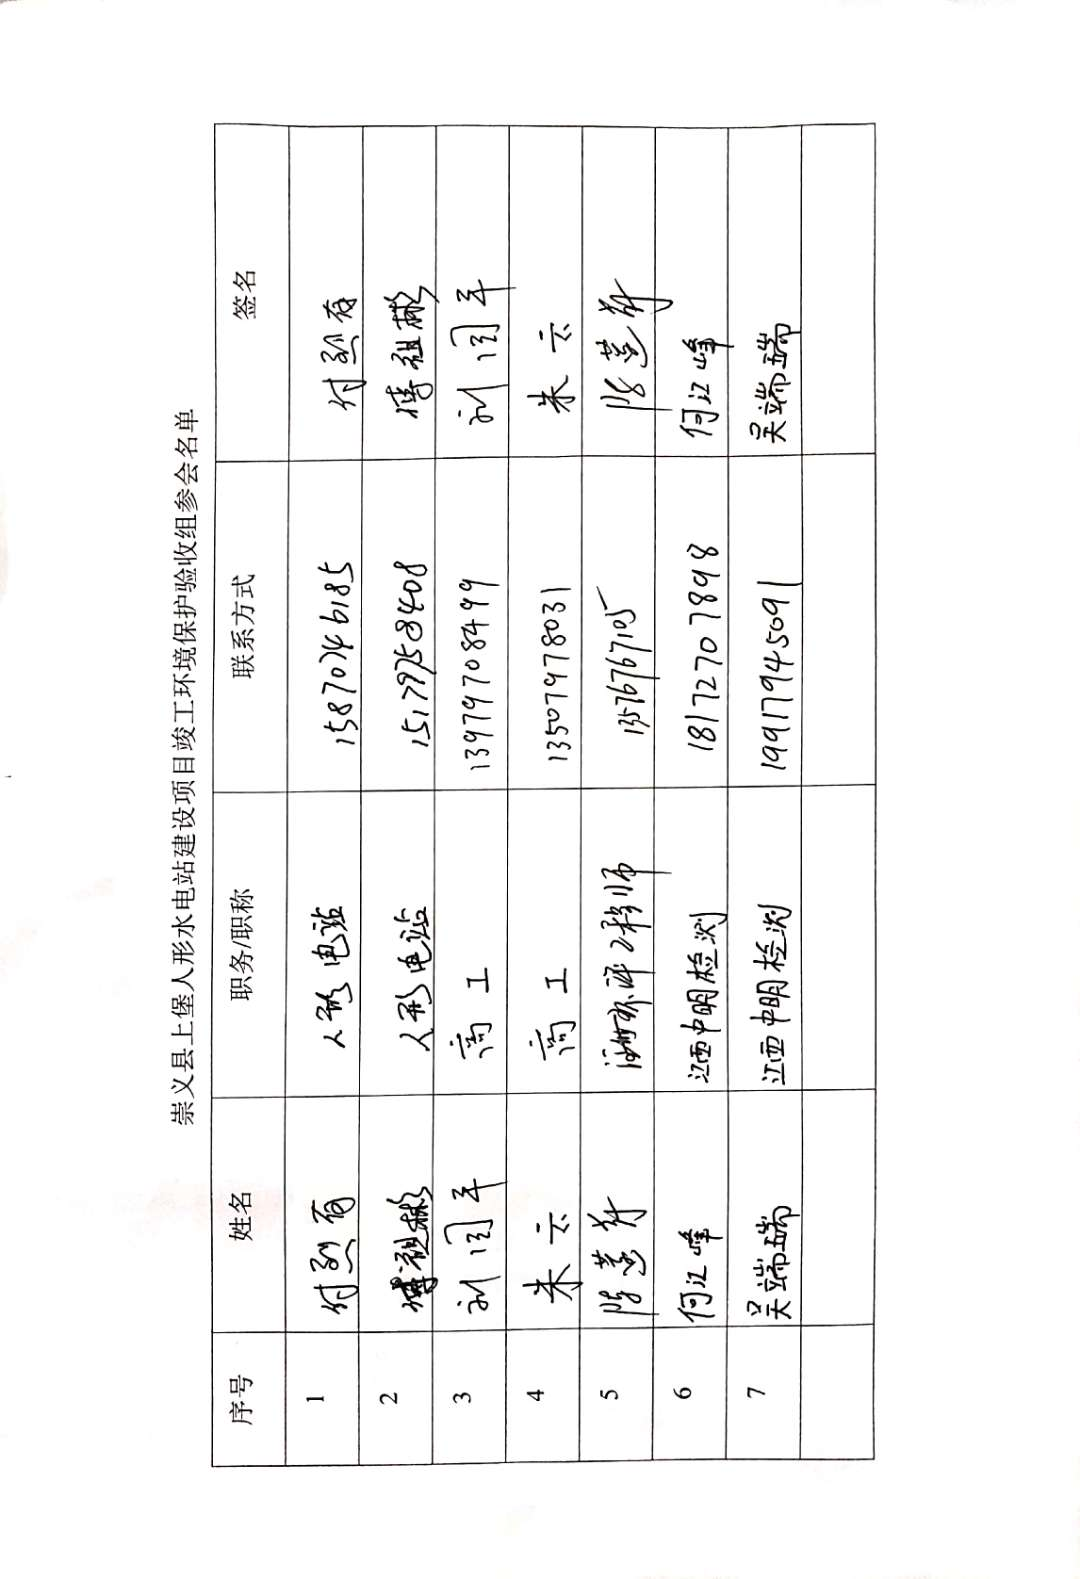 崇义县上堡人形水电站建设项目竣工环境保护验收组参会名单
序号 姓名 职务/职称 联系方式 签名
1 付烈有 人形电站 15870746185 付烈有
2 傅祖彬 人形电站 15179758408 傅祖彬
3 刘国平 高工 13979708499 刘国平
4 朱云 高工 13507978031 朱云
5 13576767105
6 何江峰 江西中明检测 18172707898 何江峰
7 吴端端 江西中明检测 19917945091 吴端端